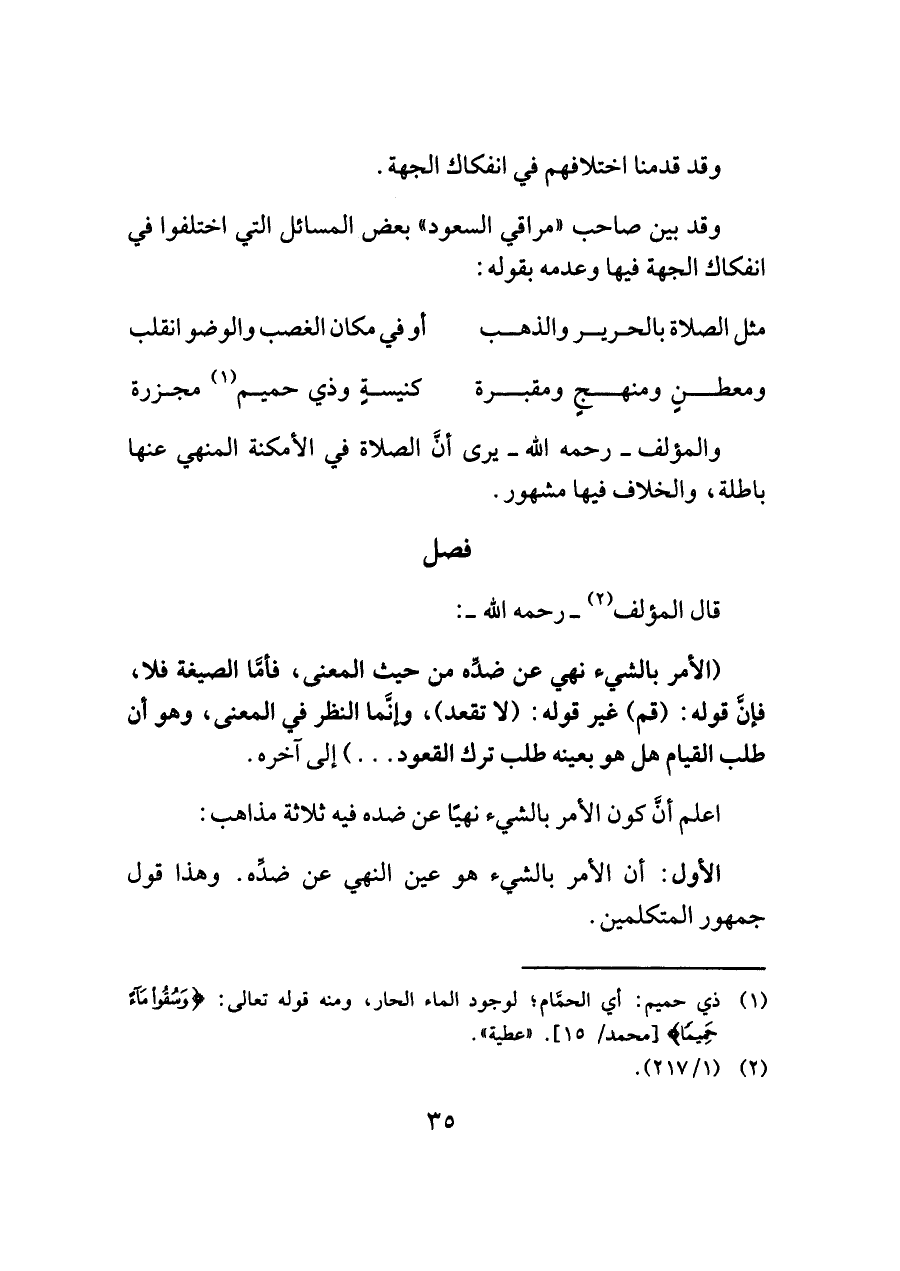 وقد قدمنا اختلافهم في انفكاك الجهة.
وقد بين صاحب «مراقي السعود» بعض المسائل التي اختلفوا في
انفكاك الجهة فيها وعدمه بقوله:
مثل الصلاة بالحرير والذهب أو في مكان الغصب والوضو انقلب
ومعطنٍ ومنهجٍ ومقبرة كنيسةٍ وذي حميم(١) مجزرة
والمؤلف ـ رحمه الله ـ يرى أنَّ الصلاة في الأمكنة المنهي عنها
باطلة، والخلاف فيها مشهور.
فصل
قال المؤلف(٢) ـ رحمه الله ـ:
(الأمر بالشيء نهي عن ضدِّه من حيث المعنى، فأمَّا الصيغة فلا،
فإنَّ قوله: (قم) غير قوله: (لا تقعد)، وإنَّما النظر في المعنى، وهو أن
طلب القيام هل هو بعينه طلب ترك القعود...) إلى آخره.
اعلم أنَّ كون الأمر بالشيء نهيًا عن ضده فيه ثلاثة مذاهب:
الأول: أن الأمر بالشيء هو عين النهي عن ضدِّه. وهذا قول
جمهور المتكلمين.
(١) ذي حميم: أي الحمَّام؛ لوجود الماء الحار، ومنه قوله تعالى: ﴿وَسُقُوا۟ مَآءً
حَمِيمًا﴾ [محمد/ ١٥]. «عطية».
(٢) (١/ ٢١٧).
٣٥